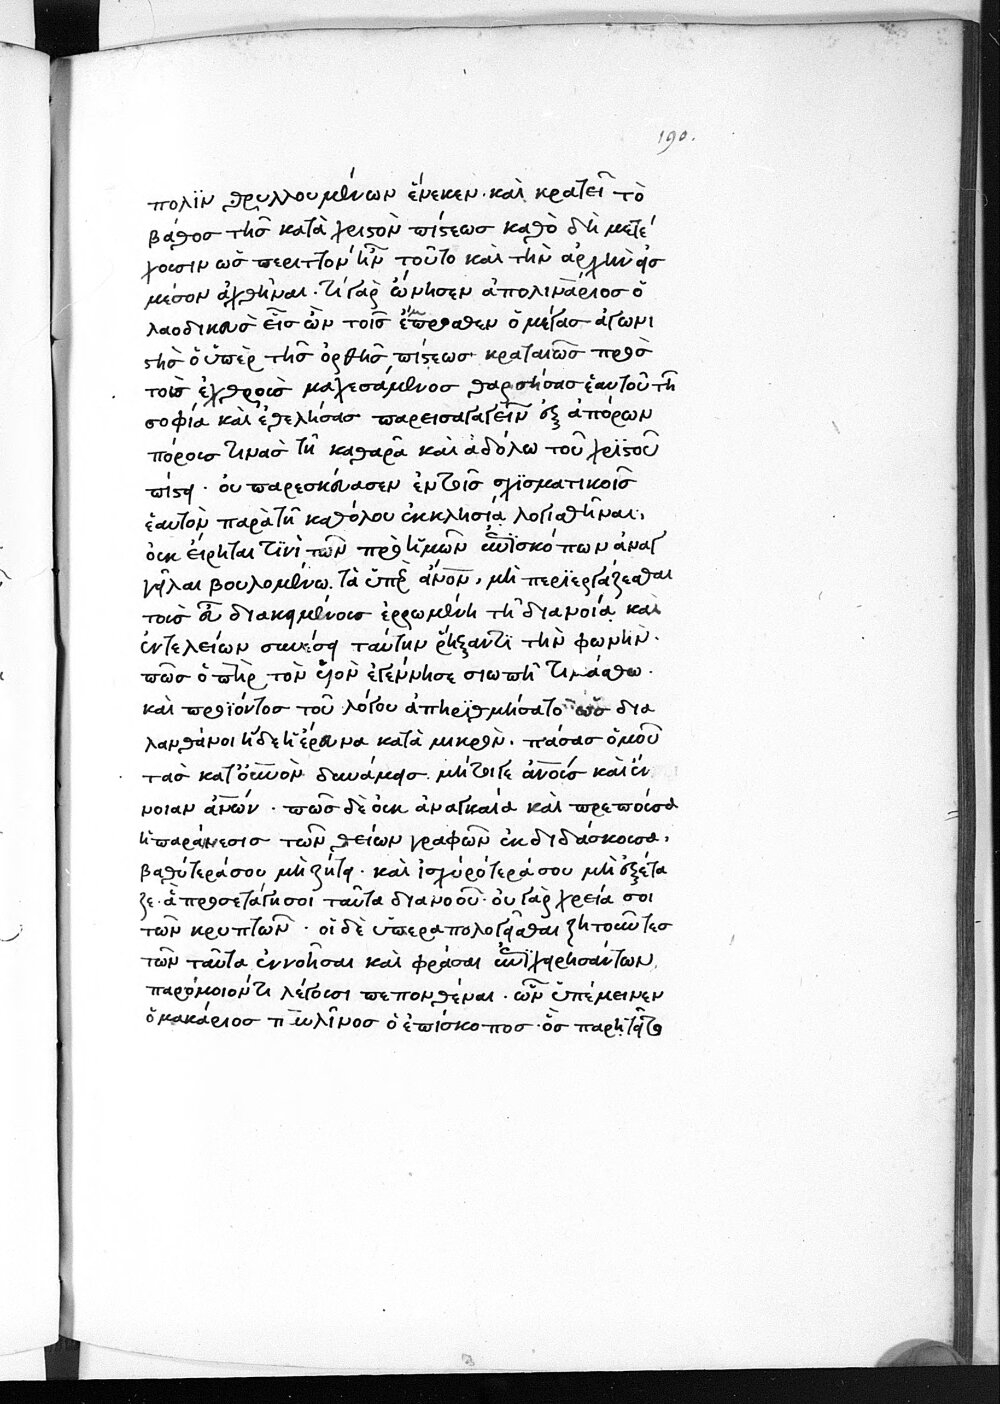 190.
πολϊν θρυλλουμένων ἕνεκεν· καὶ κρατεῖ τὸ
βάθος τῆς κατὰ χριστὸν πίστεως καθὸ δὴ μετέ
χουσιν ὡς περιττὸν ἦν τοῦτο καὶ τὴν ἀρχὴν εἰς
μέσον ἀχθῆναι· τί γὰρ ὤνησεν ἀπολινάριος ὁ
λαοδικεὺς εἷς ὢν τοῖς ἔμπροσθεν ὁ μέγας ἀγωνι
στὴς ὁ ὑπὲρ τῆς ὀρθῆς πίστεως κραταιῶς πρὸς
τοὺς ἐχθροὺς μαχεσάμενος θαρσήσας ἑαυτοῦ τῆ
σοφία καὶ ἐθελήσας παρεισαγαγεῖν ἐξ ἀπόρων
πόρους τινὰς τῆ καθαρᾶ καὶ ἀδόλω τοῦ χριστοῦ
πίστει· οὐ παρεσκεύασεν ἐν τοῖς σχισματικοῖς
ἑαυτὸν παρὰ τῆ καθόλου ἐκκλησία λογισθῆναι·
οὐκ εἴρηται τινὶ τῶν πρὸ ἡμῶν ἐπισκόπων ἀναγ
γεῖλαι βουλομένω τὰ ὑπὲρ ἄνον, μὴ περιεργάζεσθαι
τοῖς διακειμένοις ἐρρωμένη τῆ διανοία καὶ
ἐντελείων συνέσει ταύτην ῥήξαντι τὴν φωνὴν·
πῶς ὁ πὴρ τὸν υἱὸν ἐγέννησε σιωπῆ τιμάσθω·
καὶ προϊόντος τοῦ λόγου ἀπηριθμήσατο ὡς δια
λανθάνοι ἥδε ἡ ἔρευνα κατὰ μικρὸν· πάσας ὁμοῦ
τὰς κατ᾽ οὐνὸν δυνάμεις· μήτοιγε ἀνους καὶ ἔν
νοιαν ἀνων· πῶς δὲ οὐκ ἀναγκαία καὶ πρέπουσα
ἡ παραίνεσις τῶν θείων γραφῶν ἐκδιδάσκουσα·
βαθύτερά σου μὴ ζήτει· καὶ ἰσχυρότερά σου μὴ ἐξέτα
ζε· ἃ προσετάγη σοι ταῦτα διανοοῦ· οὐ γὰρ χρεία σοι
τῶν κρυπτῶν· οἱ δὲ ὑπεραπολογεῖσθαι ζητοῦντες
τῶν ταῦτα ἐννοῆσαι καὶ φράσαι ἐπιχειρησάντων
παρόμοιόν τι λέγουσι πεπονθέναι· ὧν ὑπέμεινεν
ὁ μακάριος παυλῖνος ὁ ἐπίσκοπος· ὃς παρητεῖτο